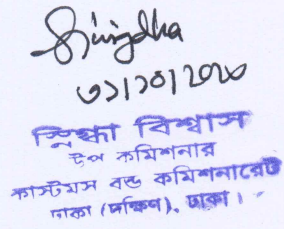 Snigdha
৩১/১০/২০২০
স্নিগ্ধা বিশ্বাস
উপ কমিশনার
কাস্টমস বন্ড কমিশনারেট
ঢাকা (দক্ষিণ), ঢাকা।